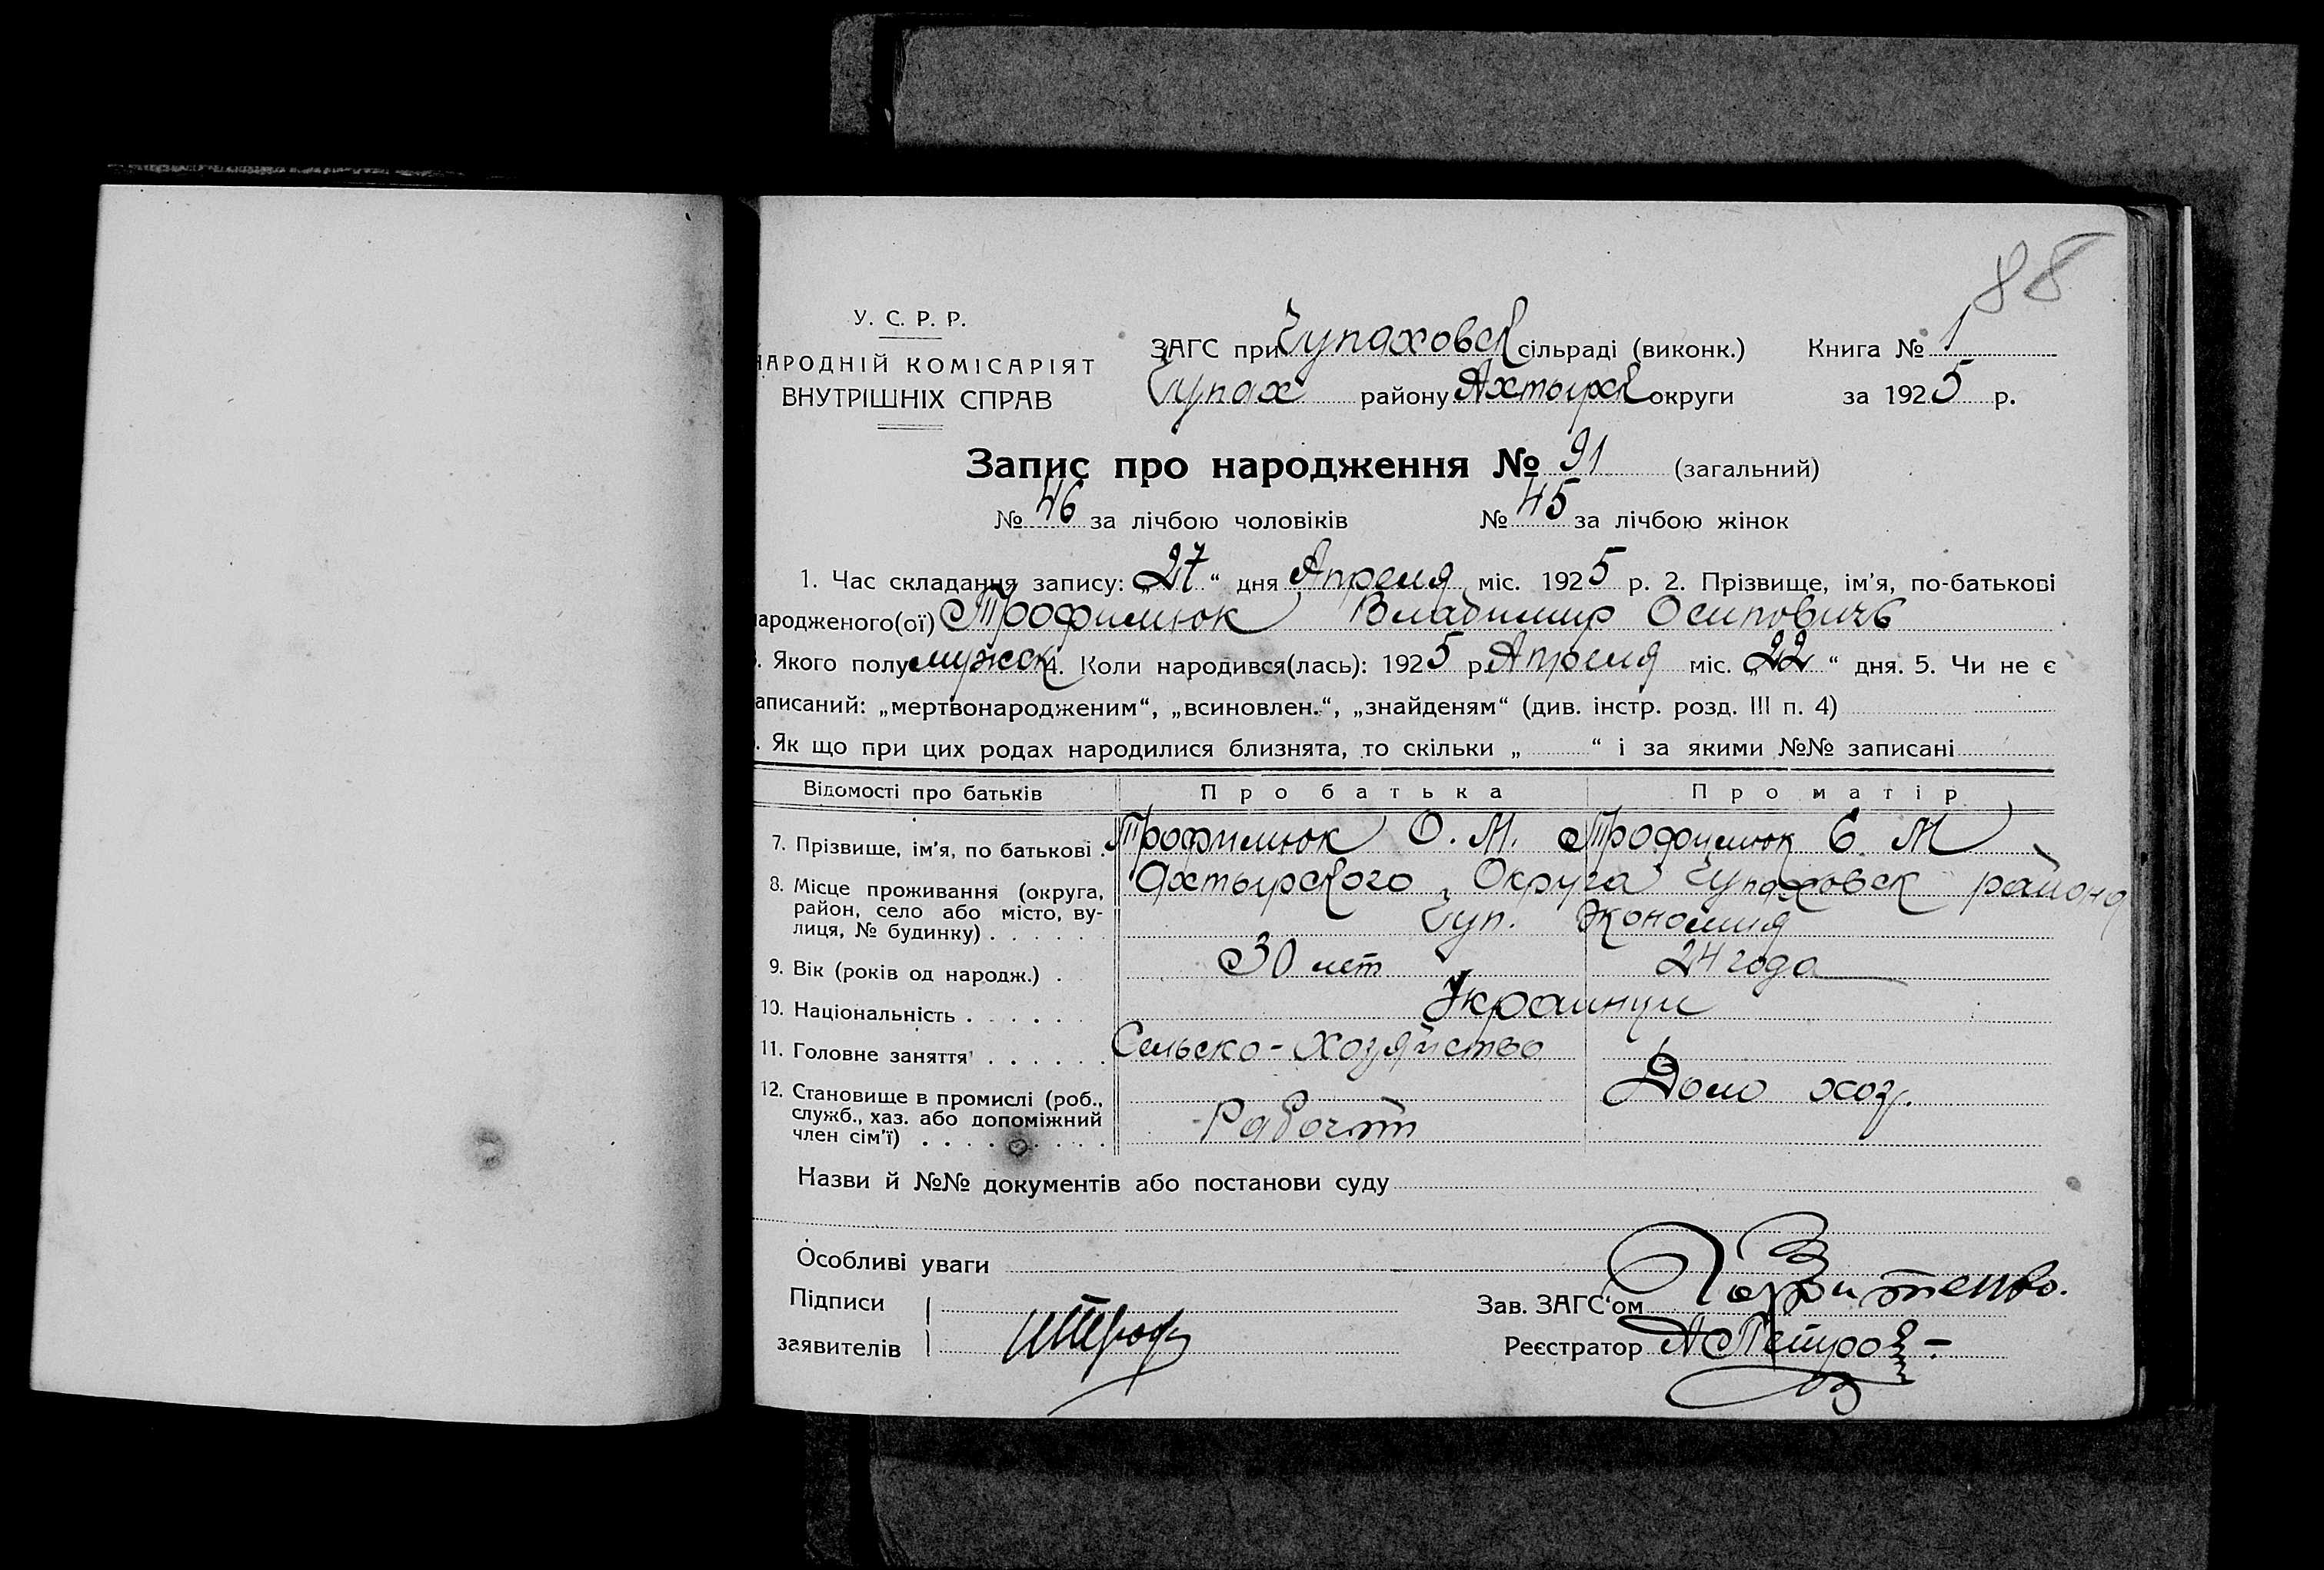 88
У. С. Р. Р.
НАРОДНІЙ КОМІСАРІЯТ
ВНУТРІШНІХ СПРАВ
ЗАГС при Чупаховск сільраді (виконк.) Книга № 1
Чупах району Ахтырск округи за 1925 р.
Запис про народження № 91 (загальний)
№ 46 за лічбою чоловіків № 45 за лічбою жінок
1. Час складання запису: „27“ дня Апреля міс. 1925 р. 2. Прізвище, ім’я, по-батькові
народженого(ої) Трофимюк Владимир Осипович
3. Якого полу мужск 4. Коли народився(лась): 1925 р. Апреля міс. „22“ дня. 5. Чи не є
записаний: „мертвонародженим“, „всиновлен.“, „знайденям“ (див. інстр. розд. III п. 4)
6. Як що при цих родах народилися близнята, то скільки „ “ і за якими №№ записані
Відомості про батьків Про батька Про матір
7. Прізвище, ім’я, по батькові . Трофимюк О. М. Трофимюк Е. М
8. Місце проживання (округа, Ахтырского Округа Чупаховск района
район, село або місто, ву-
лиця, № будинку) . . . . . . Чуп. Экономия
9. Вік (років од народж.) . 30 лет 24 года
10. Національність . . . . . . Украинци
11. Головне заняття . . . . . . Сельско-хозяйство
12. Становище в промислі (роб., Дом хоз.
служб., хаз. або допоміжний
член сім’ї) . . . . . . . . . Рабочий
Назви й №№ документів або постанови суду
Особливі уваги
Підписи
Зав. ЗАГС‘ом
заявителів
Реєстратор